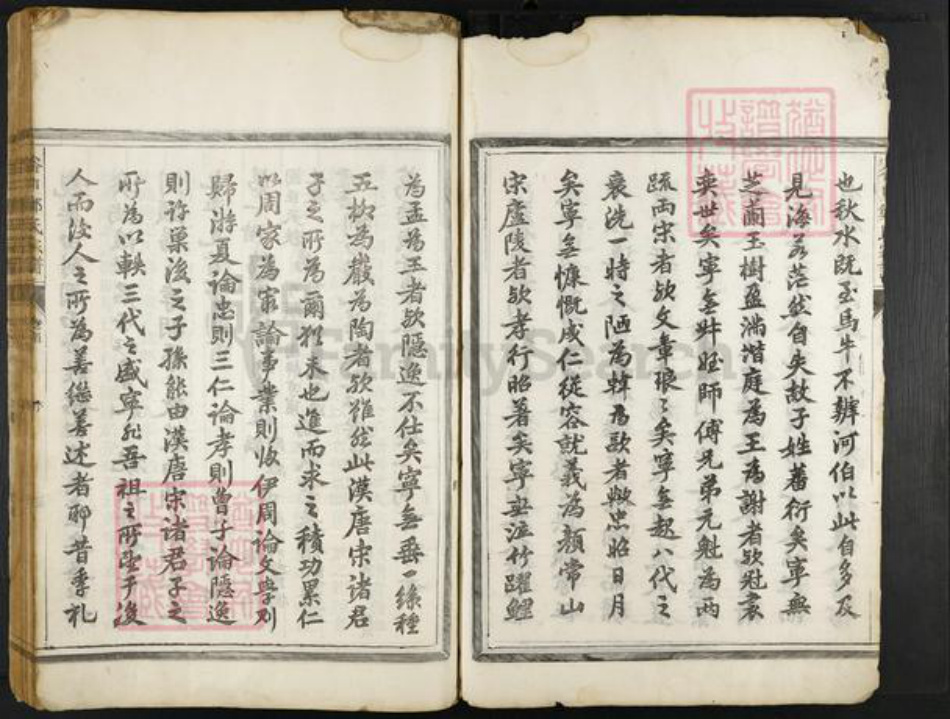 也秋水既至馬牛不辨河伯以此自多及
見海若茫然自失故子姓蕃衍矣寧無
芝蘭玉樹盈滿堦庭為王為謝者欤冠裳
奕世矣寧無姪師傅兄弟元魁為兩
疏兩宋者欤文章琅々矣寧無起八代之
衰洗一時之陋為韓為歐者欤忠昭日月
矣寧無慷慨成仁從容就義為顏常山
宋廬陵者欤孝行昭著矣寧無泣竹躍鯉
為孟為王者欤隱逸不仕矣寧無垂一絲種
五柳為嚴為陶者欤雖然此漢唐宋諸君
子之所為爾猶未也進而求之積功累仁
以周家為家論事業則收伊周論文學則
歸游夏論忠則三仁論孝則曾子論隱逸
則許巢後之子孫能由漢唐宋諸君子之
所為以軼三代之盛寧非吾祖之所望于後
人而後人之所為善継善述者耶昔季札
FamilySearch